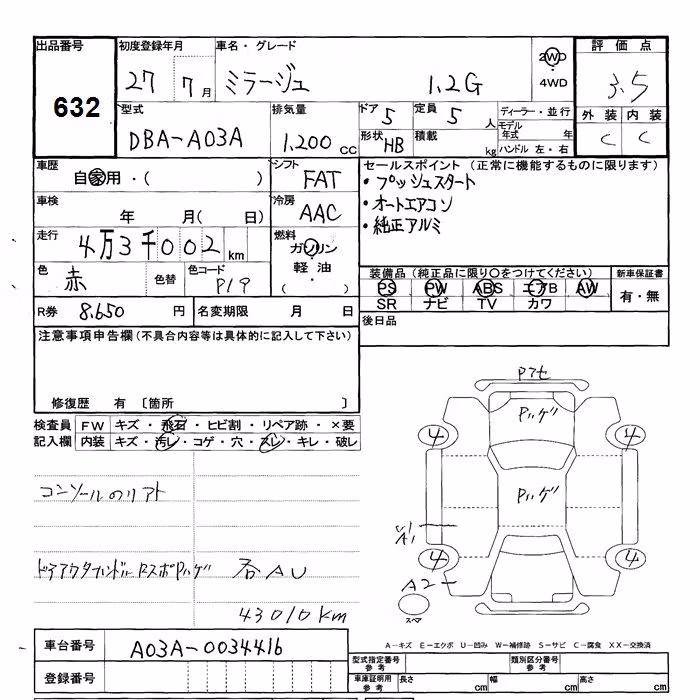 出品番号
632
初度登録年月
27 7月
車名・グレード
ミラージュ 1.2G
2WD
・
4WD
評価点
3.5
外装 内装
C C
型式
DBA-A03A
排気量
1,200 cc
ドア 5
定員 5 人
形状 HB
積載 kg
ディーラー・並行
モデル
年式 年
ハンドル 左・右
車歴
自家用・( )
シフト
FAT
車検
年 月( 日)
冷房
AAC
走行
4万3千002km
燃料
ガソリン
軽油・
( )
色
赤
色替
色コード
P19
R券 8,650 円
名変期限 月 日
セールスポイント(正常に機能するものに限ります)
・プッシュスタート
・オートエアコン
・純正アルミ
装備品(純正品に限り○をつけてください)
PS PW ABS エアB AW
SR ナビ TV カワ
新車保証書
有・無
後日品
注意事項申告欄(不具合内容等は具体的に記入して下さい)
修復歴 有 〔箇所 〕
検査員
記入欄
FW キズ・飛石・ヒビ割・リペア跡・×要
内装 キズ・汚レ・コゲ・穴・スレ・キレ・破レ
コンソールのリアト
Pハゲ
Pハゲ
4 4
4 4
A1
A2
スペア
各AU
43010km
A-キズ E-エクボ U-凹み W-補修跡 S-サビ C-腐食 XX-交換済
車台番号 A03A-0034416
登録番号
型式指定番号
参考
類別区分番号
参考
車庫証明用
参考
長さ cm
幅 cm
高さ cm